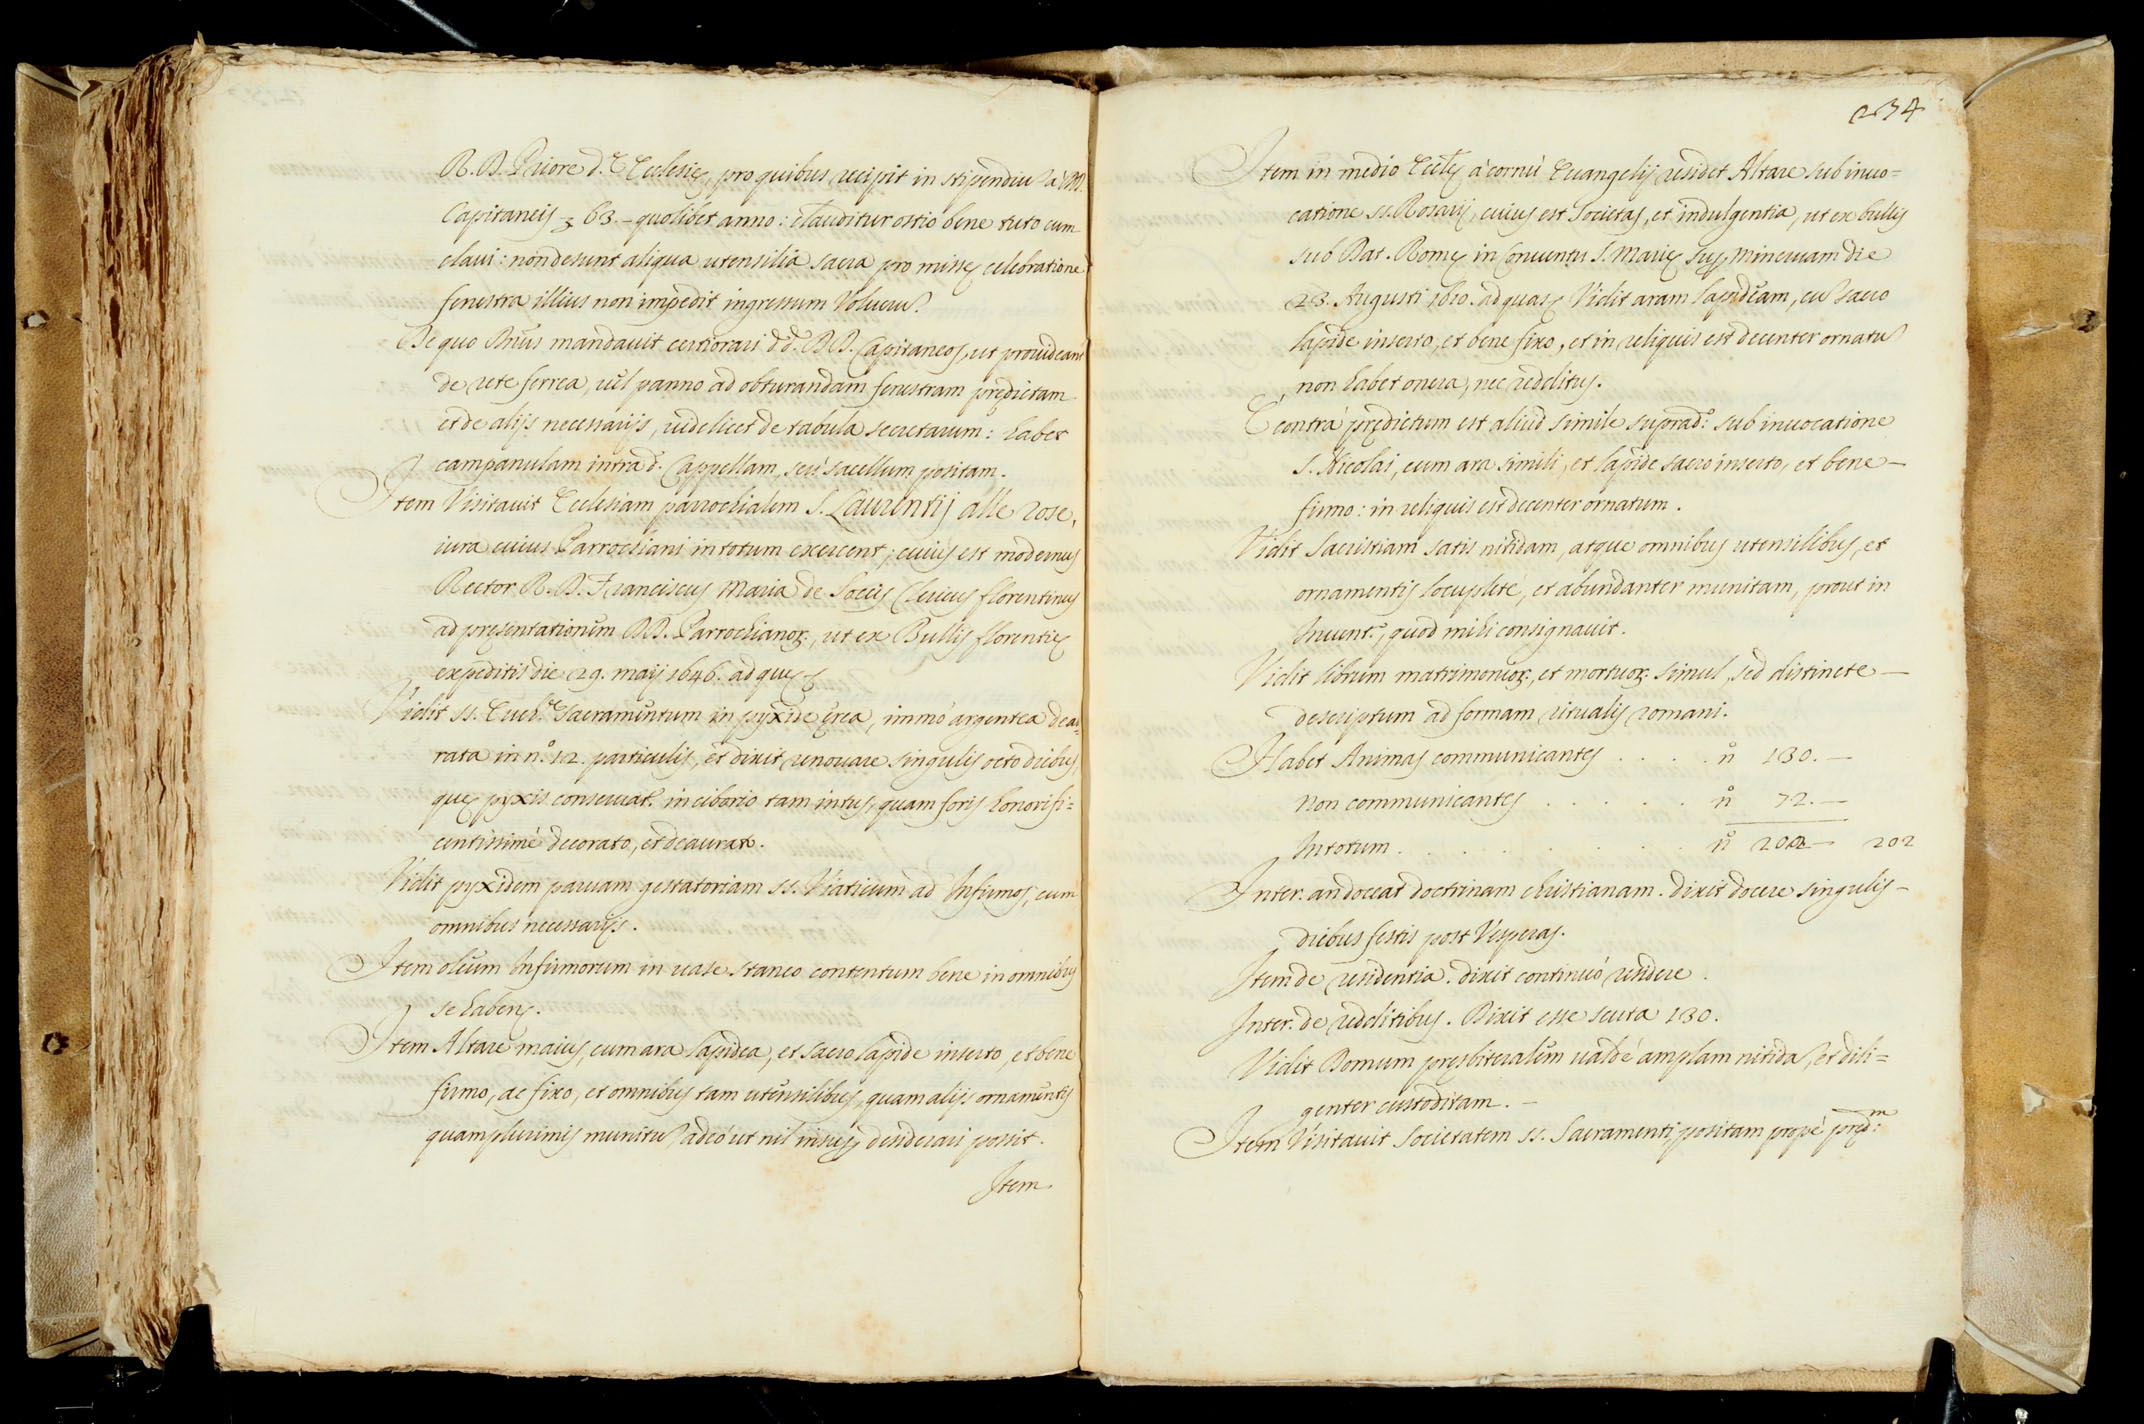 R. D. Priore d.ę Ecclesię, pro quibus recipit in stipendiũ à DD.
Capitaneis 63.- quolibet anno: clauditur ostio bene tuto cum
claui: non desunt aliqua utensilia sacra pro missę celebratione
fenestra illius non impedit ingressum Volucrũ.
De quo Dnũs mandauit certiorari dd. DD. Capitaneos, ut prouideant
de rete ferrea, uẽl panno ad obturandam fenestram prędictam
et de alijs necessarijs, uidelicet de tabula secretarum: habet
campanulam intra d. Cappellam, seù sacellum positam.
Item Visitauit Ecclesiam parrochialem S. Laurentij alle rose,
iura cuius Parrochiani in totum exercent, cuius est modernus
Rector R. D. Franciscus Maria de Socijs Clericus florentinus
ad presentationem DD. Parrochianoꝝ:, ut ex Bullis florentię
expeditis die 29. maij 1646. ad quę
Vidit ss. Euch.ę Sacramentum in pyxide ęrea, immò argentea deau-
rata in n.º 12. particulis, et dixit renouare singulis octo diebus,
quę pyxis conseruat.r in ciborio tam intus, quam foris honorifi=
centissimè decorato, et deaurato.
Vidit pyxidem paruam gestatoriam ss. Viaticum ad Infirmos, cum
omnibus necessarijs.
Item oleum Infirmorum in uase staneo contentum bene in omnibus
se habens.
Item Altare maius, cum ara lapidea, et sacro lapide inserto, et bene
firmo, ac fixo, et omnibus tam utensilibus, quam alijs ornamentis
quamplurimis munitũ adeò ut nil insup desiderari possit.
Item
234
Item in medio Eccl.ę à cornù Euangelij residet Altare sub inuo=
catione ss. Rosarij, cuius est Societas, et indulgentia, ut ex bullis
sub Dat. Romę in Conuentu S. Marię sup Mineruam die
23. Augusti 1610. ad quas Vidit aram lapideam, cũ sacro
lapide inserto, et bene fixo, et in reliquis est decenter ornatũ
non habet onera, nec redditus.
È contrà prędictum est aliud simile suprad.º sub inuocatione
S. Nicolai, cum ara simili, et lapide sacro inserto, et bene-
firmo: in reliquis est decenter ornatum.
Vidit Sacristiam satis nitidam, atque omnibus utensilibus, et
ornamentis locupletè, et abundanter munitam, prout in
Inuent.º, quod mihi consignauit.
Vidit librum matrimonioꝝ:, et mortuoꝝ: simul, sed distincte-
descriptum ad formam ritualis romani.
Habet Animas communicantes . . . . nº 130.-
Non communicantes . . . . . nº 72.-
In totum . . . . . . . . nº 202- 202
Inter. an doceat doctrinam christianam. dixit docere singulis-
diebus festis post Vesperas.
Item de residentia. dixit continuò residere.
Inter. de redditibus. Dixit esse scuta 130.
Vidit Domum pręsbiteralem ualdè amplam nitidã, et dili=
genter custoditam.-
Item Visitauit Societatem ss. Sacramenti positam propè pręd:m